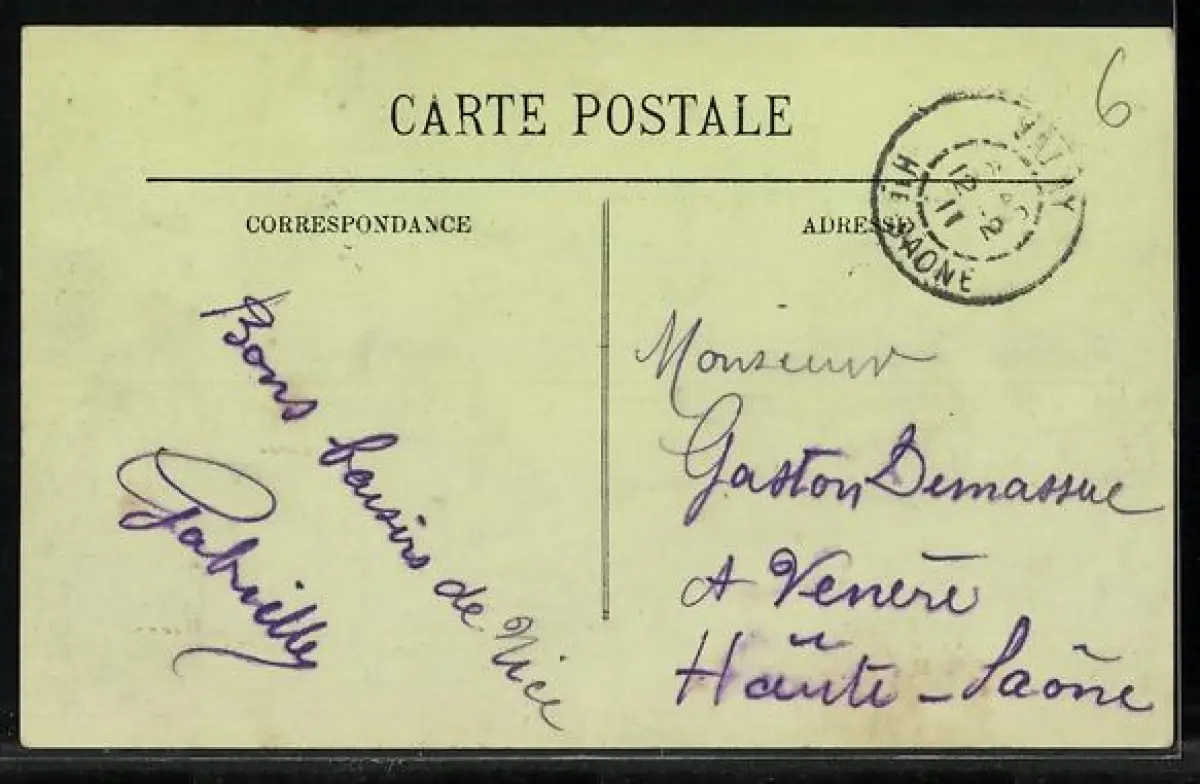 CARTE POSTALE
6
CORRESPONDANCE
ADRESSE
HTE SAONE
12 -2
11
Bons baisirs de Nice
Gabrielle
Monsieur
Gaston Demassue
A Venère
Haute-Saône